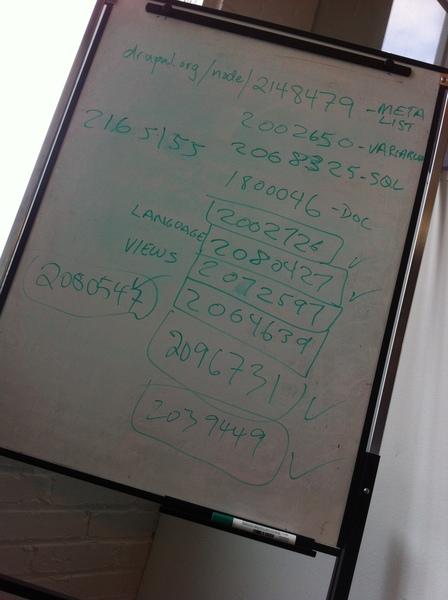 drupal.org/node/2148479 - META LIST
2002650 - VARIABLE
2165155
2068325 - SQL
1800046 - DOC
2002726
LANGUAGE 2080427
VIEWS 2072597
2080547
2064639
2096731
2039449